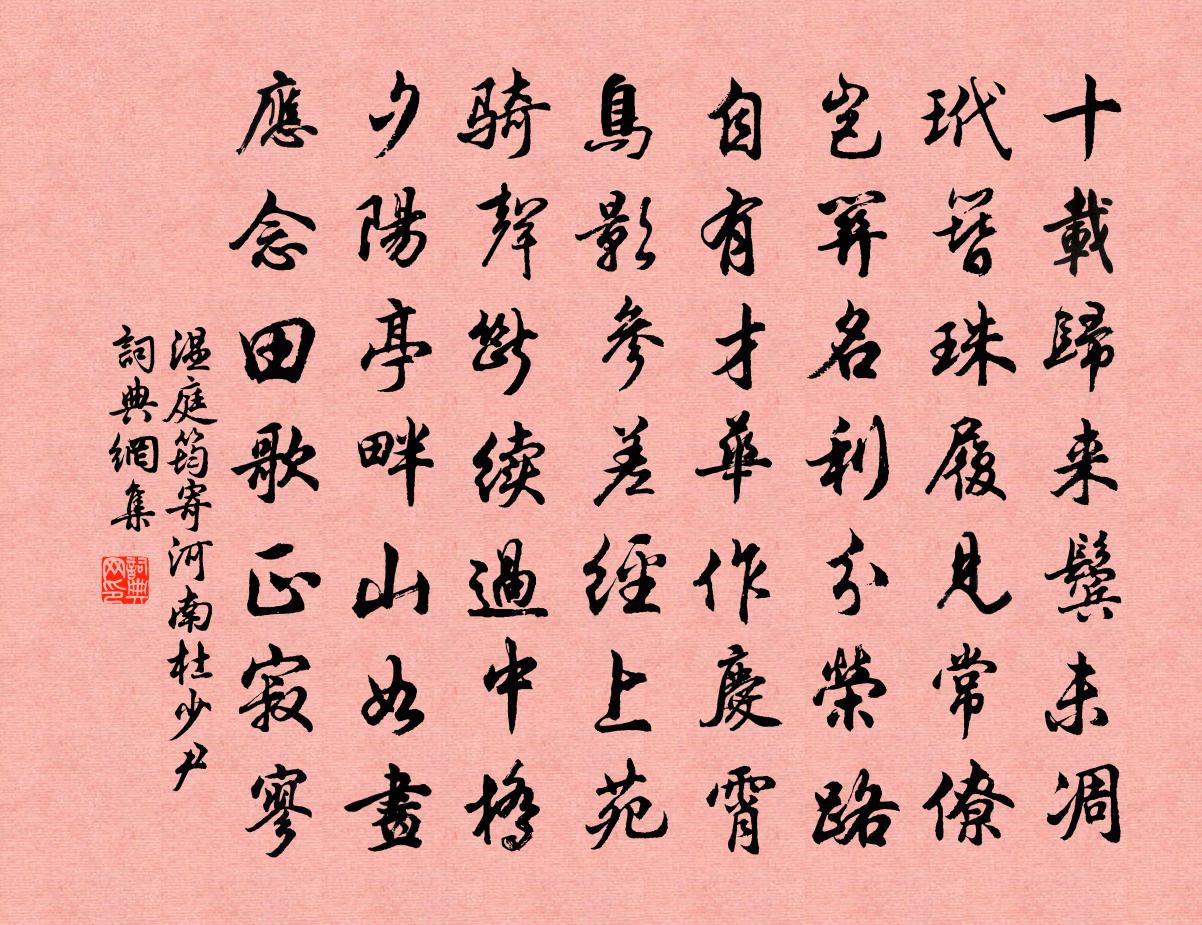 十載歸来鬢未凋
玳簪珠履見常僚
豈關名利分榮路
自有才華作慶霄
鳥影參差經上苑
騎聲斷續過中橋
夕陽亭畔山如畫
應念田歌正寂寥
温庭筠寄河南杜少尹
詞典網集
詞典网印